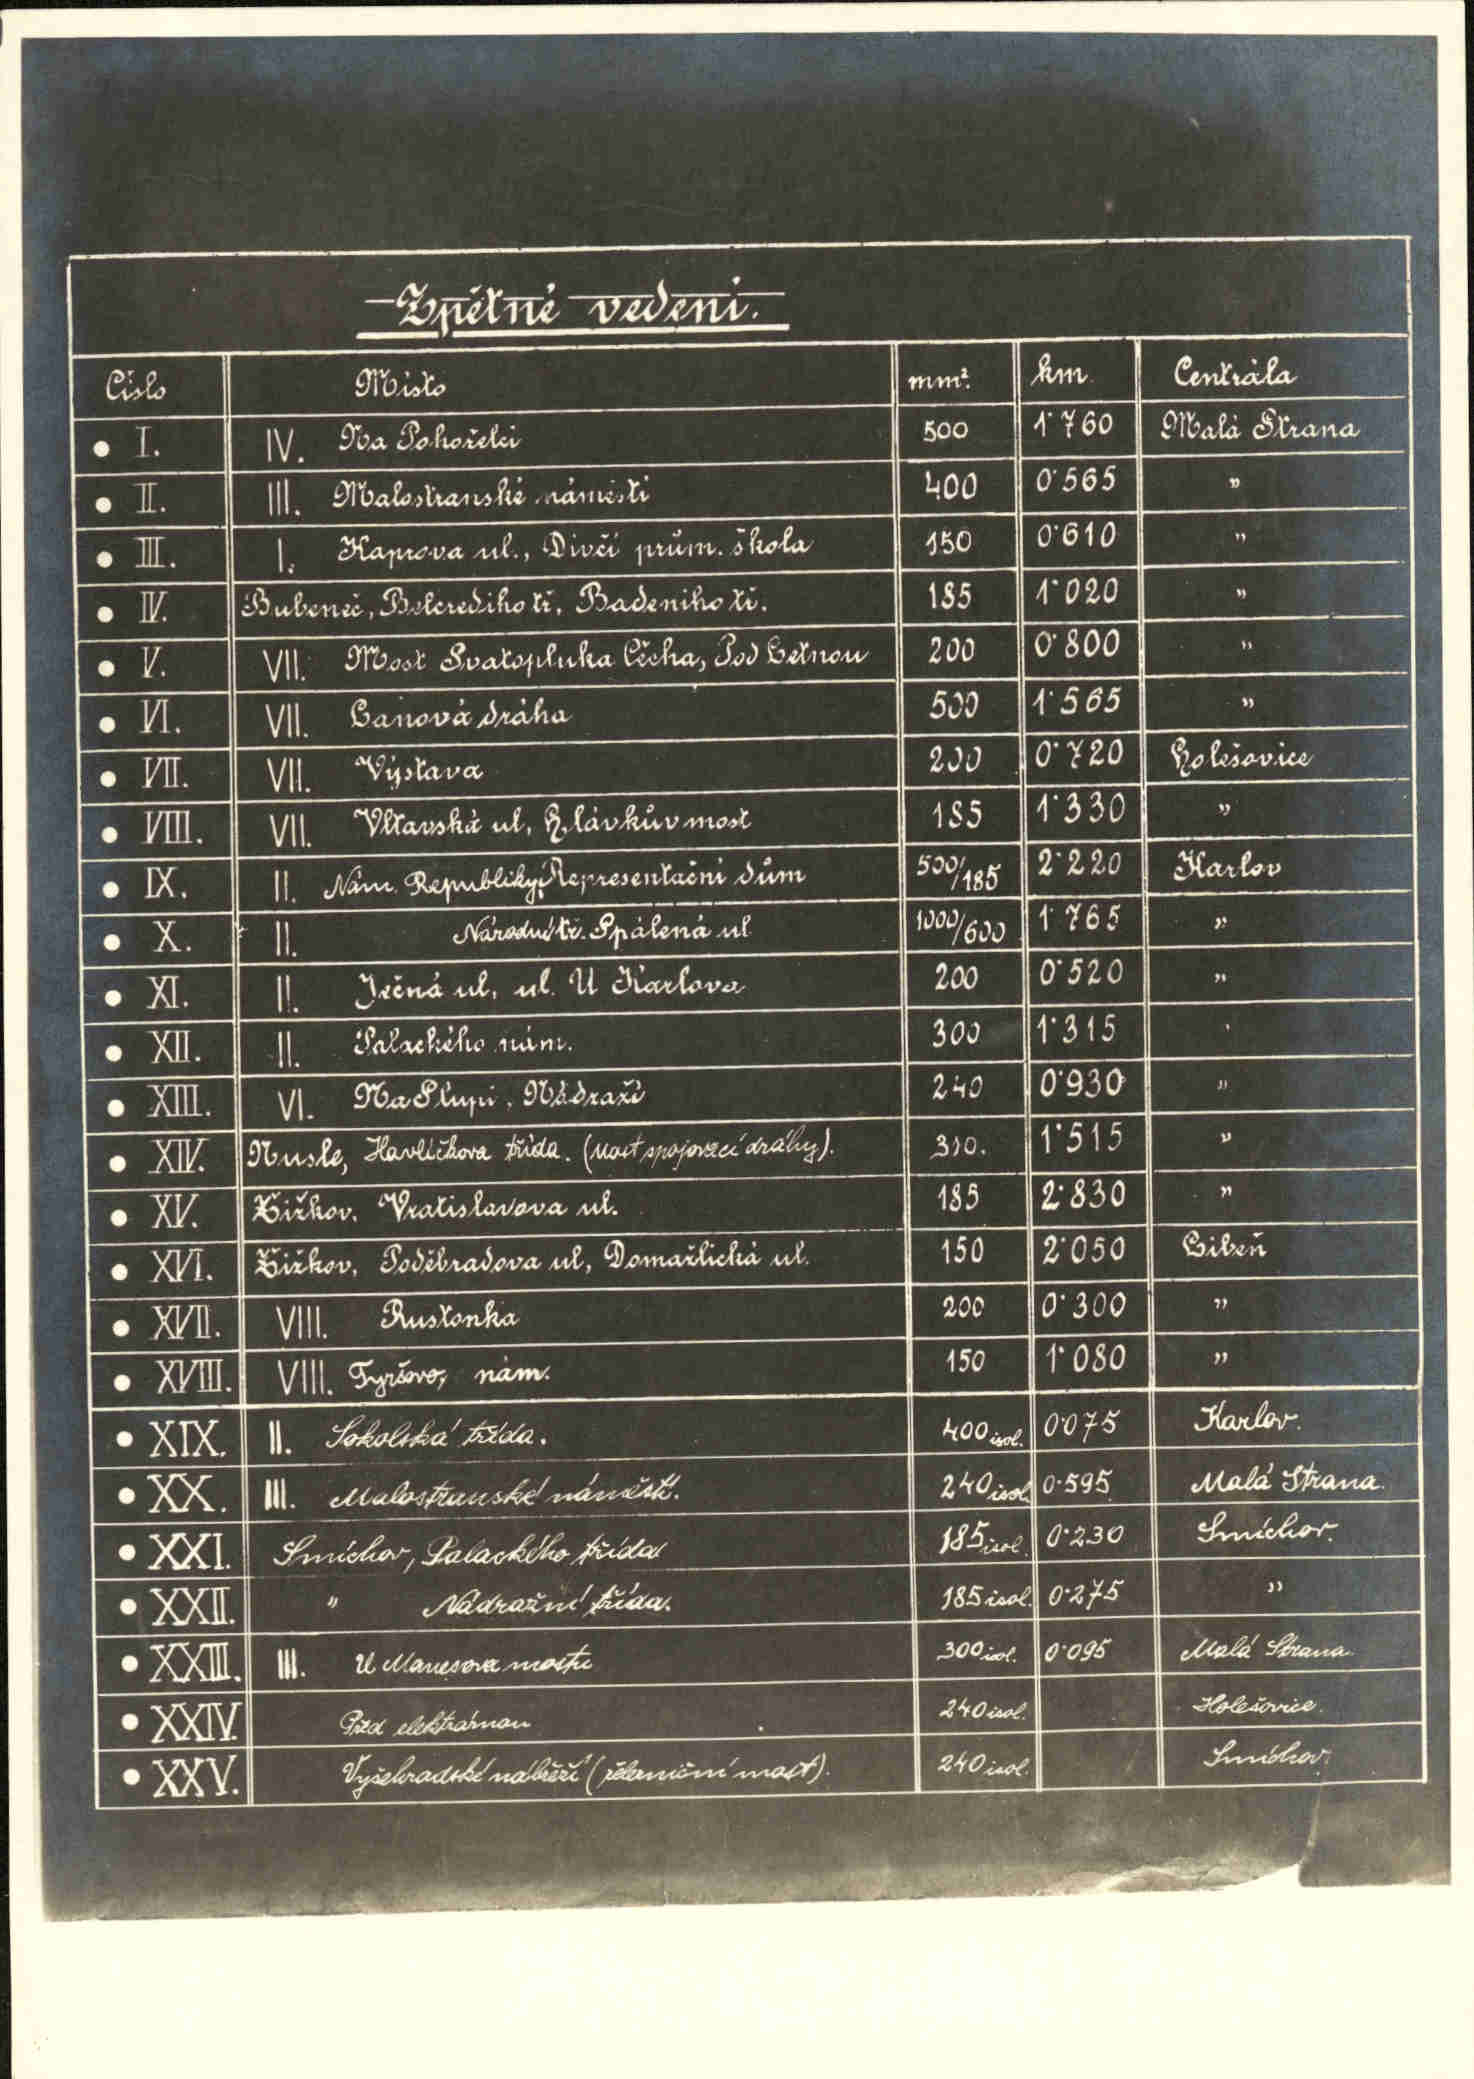 Zpětné vedení.
Číslo Místo mm². km. Centrála
I. IV. Na Pohořelci 500 1·760 Malá Strana
II. III. Malostranské náměstí 400 0·565 "
III. I. Kaprova ul., Dívčí prům. škola 150 0·610 "
IV. Bubeneč, Belcrediho tř. Badeniho tř. 185 1·020 "
V. VII. Most Svatopluka Čecha, Pod Letnou 200 0·800 "
VI. VII. Lanová dráha 500 1·565 "
VII. VII. Výstava 200 0·720 Holešovice
VIII. VII. Vltavská ul, Hlávkův most 185 1·330 "
IX. II. Nám. Republiky, Representační dům 500/185 2·220 Karlov
X. II. Národní tř. Spálená ul 1000/600 1·765 "
XI. II. Ječná ul, ul. U Karlova 200 0·520 "
XII. II. Palackého nám. 300 1·315
XIII. VI. Na Slupi, Nádraží 240 0·930 "
XIV. Nusle, Havlíčkova třída. (Most spojovací dráhy). 310. 1·515 "
XV. Žižkov, Vratislavova ul. 185 2·830 "
XVI. Žižkov, Poděbradova ul, Domažlická ul. 150 2·050 Libeň
XVII. VIII. Rustonka 200 0·300 "
XVIII. VIII. Tyršovo, nám. 150 1·080 "
XIX. II. Sokolská třída. 400 isol. 0·075 Karlov.
XX. III. Malostranské náměstí. 240 isol. 0·595 Malá Strana.
XXI. Smíchov, Palackého třída 185 isol. 0·230 Smíchov.
XXII. " Nádražní třída. 185 isol. 0·275 "
XXIII. III. U Manesova mostu 300 isol. 0·095 Malá Strana.
XXIV. Před elektrárnou 240 isol. Holešovice.
XXV. Vyšehradské nábřeží (železniční most). 240 isol. Smíchov.